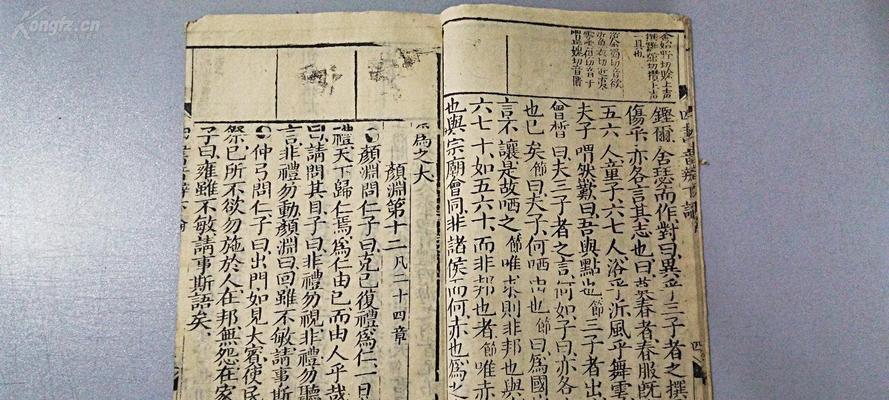 Kongfz.cn
鏗爾舍瑟而作對曰異乎三子者之撰
傷乎亦各言其志也曰莫春者春服既
五六人童子六七人浴乎沂風乎舞雩
夫子喟然歎曰吾與點也節三子者出
曾皙曰夫三子者之言何如子曰亦各
也已矣節曰夫子何哂由也節曰爲國
言不讓是故哂之節唯求則非邦也與
六七十如五六十而非邦也者節唯赤
也與宗廟會同非諸侯而何赤也爲之
爲之大
顏淵第十二凡二十四章
顏淵問仁子曰克己復禮爲仁一日
禮天下歸仁焉爲仁由己而由人乎哉
曰請問其目子曰非禮勿視非禮勿聽
言非禮勿動顏淵曰回雖不敏請事斯
仲弓問仁子曰出門如見大賓使民
祭己所不欲勿施於人在邦無怨在家
子曰雍雖不敏請事斯語矣